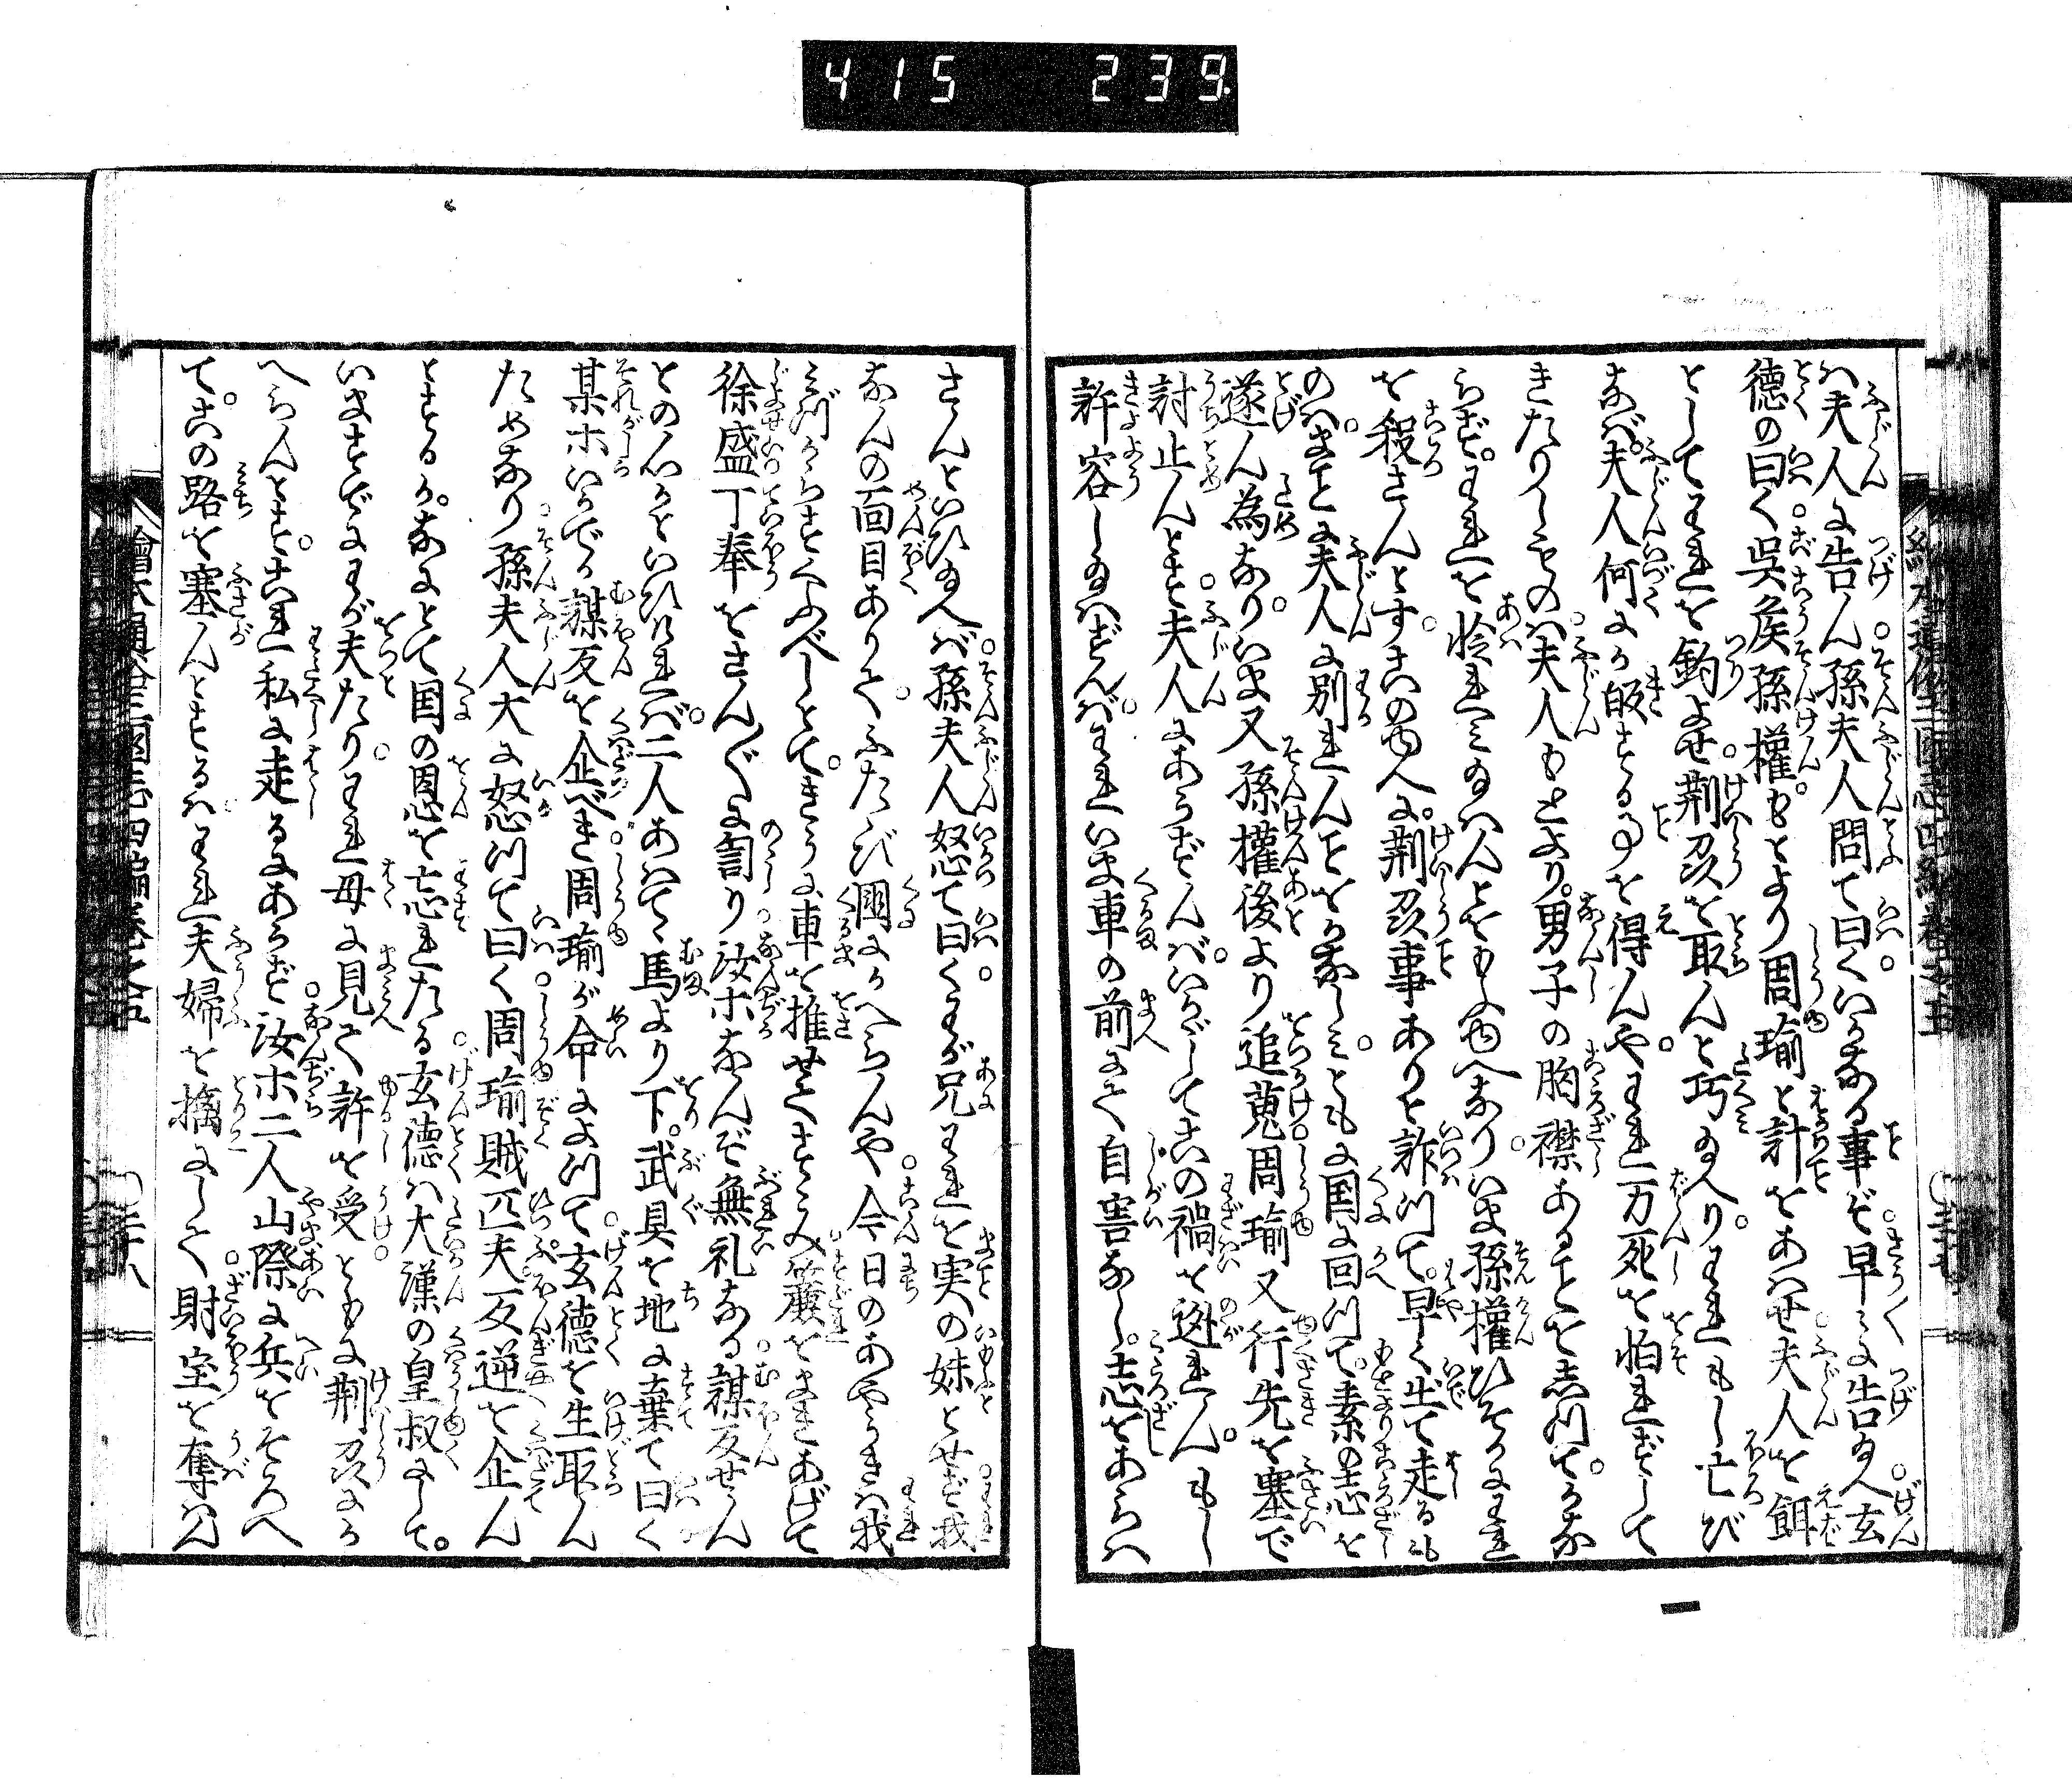 415 239
は夫人に告ん孫夫人問て曰くいかなる事ぞ早々に告給へ玄
徳の曰く呉侯孫権もとより周瑜と計をあはせ夫人を餌
としてわれを釣よせ荆州を取んと巧み給へり。われもし亡び
なば。夫人何によつて帰きする事を得んや。われ万死を怕れずして
きたりしものハ夫人もとより。男子の胸襟あることを志つて。かな
らず。われを怜れミ給はんとをもふゆへなり。いま孫権ひそかにわれ
を殺さんとす。このゆへに。荆州事ありと詐つて。早く出て走るも
のへ。まことに夫人に別れんことをかなしミ。ともに国に回つて。素の志を
遂ん為なり。いま又孫権後より追蒐周瑜又行先を塞で
討止んとす夫人にあらずんバ。いかでこの禍を遁れん。もし
許容し給はずんバ。われいま車の前にて自害なし。志をあらハ
さんといひ給へバ孫夫人怒て曰くわが兄われを実の妹とせず我
なんの面目ありて。ふたゝび國にかへらんや今日のあやうきハ我
ミづからすくふべしとて。きうに車を推せてすゝみ簾をまきあげて
徐盛丁奉をさん〲に詈り汝ホなんぞ無礼なる謀反せん
との心かといひければ。二人あはて馬より下。武具を地に棄て曰く
某ホいかでか謀反を企べき周瑜が命によつて玄徳を生取ん
ためなり孫夫人大に怒つて曰く周瑜賊匹夫反逆を企ん
とするか。なにとて国の恩を忘れたる玄徳ハ大漢の皇叔にして。
いまさでにわが夫たり。われ母に見て許を受ともに荆州にか
へらんとす。これ私に走るにあらず汝ホ二人山際に兵をそろへ
て。この路を塞んとするハわれ夫婦を擒にして財宝を奪ハん
繪本通俗三國志四編巻之五